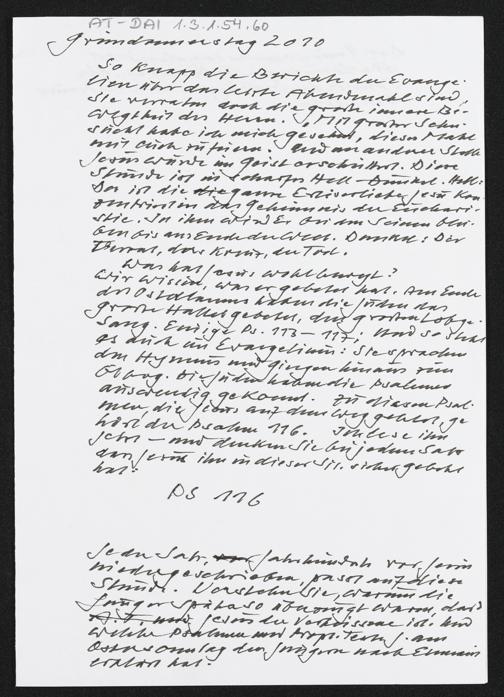 AT-DAI 1.3.1.54.60
Gründonnerstag 2010
So knapp die Berichte der Evange-
lien über das letzte Abendmahl sind,
sie verraten doch die große innere Be-
wegtheit des Herrn. "Mit großer Sehn-
sucht habe ich mich gesehnt, dieses Mahl
mit euch zu feiern. Und an anderer Stelle
Jesus wurde im Geist erschüttert. Diese
Stunde ist in scharfes Hell-Dunkel. Hell:
Da ist die ganze Erlöserliebe Jesu kon-
zentriert in das Geheimnis der Euchari-
stie. In ihm wird Er bei den Seinen blei-
ben bis ans Ende der Welt. Dunkel: Der
Verrat, das Kreuz, der Tod.
Was hat Jesus wohl bewegt?
Wir wissen, was er gebetet hat. Am Ende
des Ostermahles haben die Juden das
große Hallel gebetet, den großen Lobge-
sang. Einige Ps. 113 - 117; Und so steht
es auch im Evangelium: Sie sprachen
den Hymnus und gingen hinaus zum
Ölberg. Die Juden haben die Psalmen
auswendig gekonnt. Zu diesen Psal-
men, die Jesus auf dem Weg gebetet, ge
hört der Psalm 116. Ich lese ihn
jetzt - und denken Sie bei jedem Satz
das Jesus ihn in dieser Sit. sicher gebetet
hat:
PS 116
Jeder Satz, Jahrhunderte vor Jesus
niedergeschrieben, passt auf diese
Stunde. Verstehen Sie, warum die
Jünger später so überzeugt waren, dass
Jesus der Verheissene ist. Und
welche Psalmen und Proph. Texte J. am
Ostersonntag den Jüngern nach Emmaus
erklärt hat.